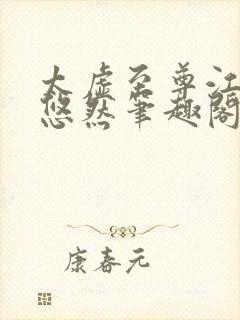 太虚至尊江
悠然笔趣阁
康春元